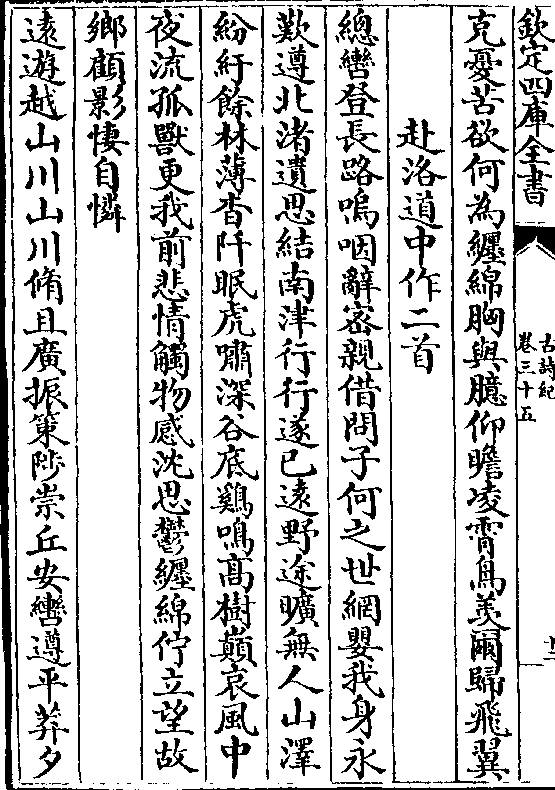 欽定四庫全書
古詩紀
卷三十五
克憂苦欲何為纏綿胸與臆仰瞻凌霄鳥羨爾歸飛翼
赴洛道中作二首
總轡登長路嗚咽辭密親借問子何之世網嬰我身永
歎遵北渚遺思結南津行行遂已遠野途曠無人山澤
紛紆餘林薄杳阡眠虎嘯深谷底鷄鳴高樹巔哀風中
夜流孤獸更我前悲情觸物感沈思鬱纏綿佇立望故
鄉顧影悽自憐
遠遊越山川山川脩且廣振策陟崇丘安轡遵平莽夕